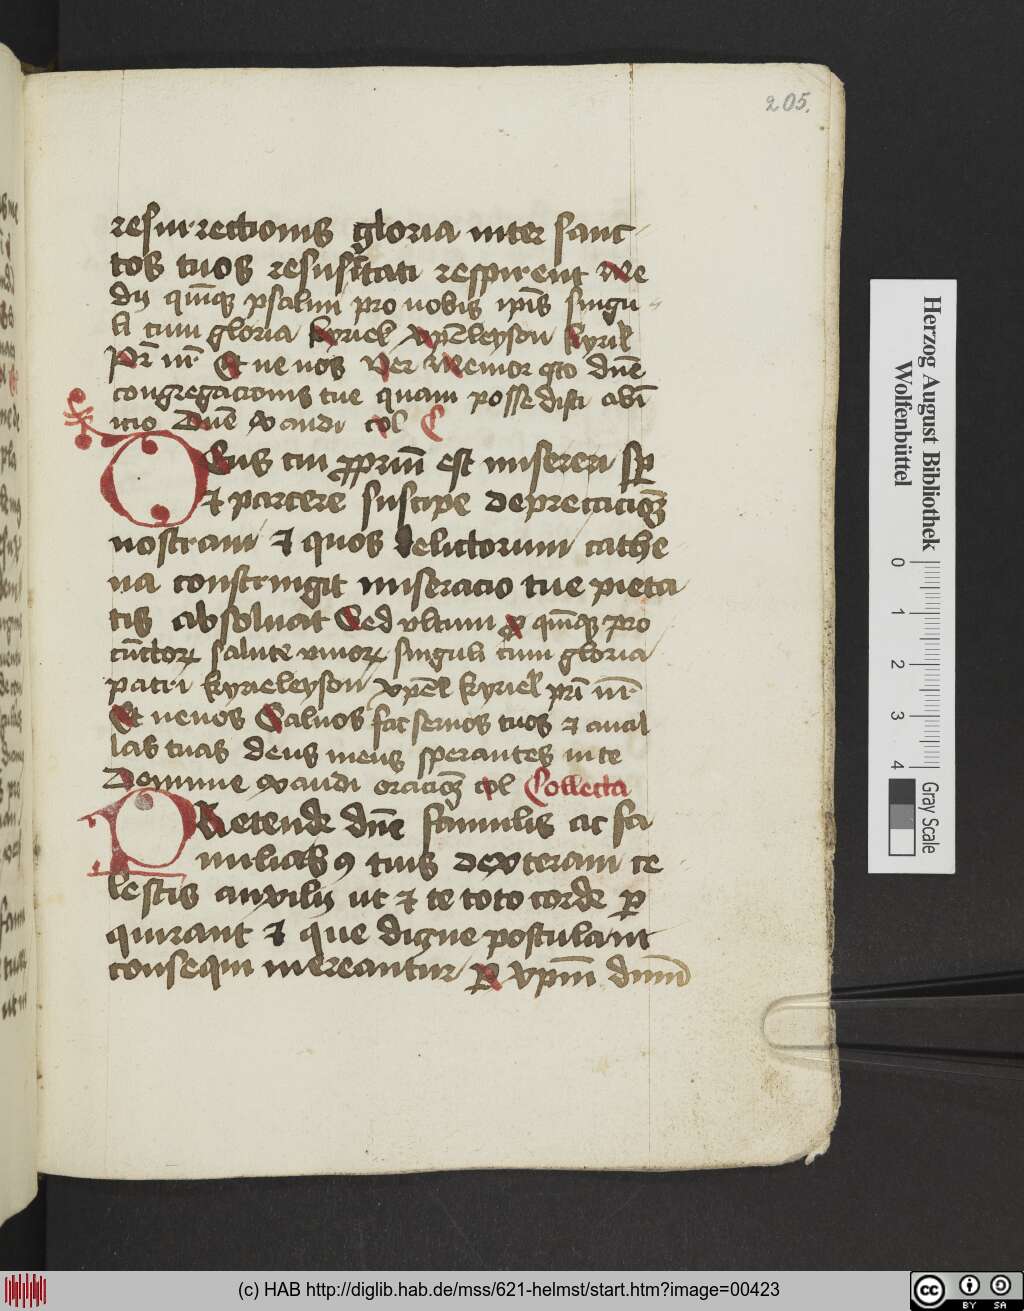 205.
resurrectionis gloria inter sanc-
tos tuos resuscitati respirent Me
dij quinq̄ psalmi pro nobis ip̄is singu-
li cum gloria kyriel xp̄eleyson kyril
Pr̄ nr̄ Et ne nos ver Memor q̄to dn̄e
congregacionis tue quam possedisti ab ī
icio Dn̄e exaudi cpl C
Deus cui ꝓpriū est misereri sp̄
et parcere suscipe deprecacionē
nostram et quos delictorum cathe
na constringit miseracio tue pieta
tis absoluat Sed ultimi quinq̄ pro
cūctorꝝ salute viuorꝝ singuli cum gloria
patri kyrieleyson xp̄el kyriel pr̄ nr̄
Et ne nos Saluos fac seruos tuos et ancil
las tuas deus meus sperantes in te
Domine exaudi oracionē cpl Collecta
Pretende dn̄e famulis ac fa
mulabꝫ tuis dexteram ce
lestis auxilij ut et te toto corde ꝑ
quirant et que digne postulant
consequi mereantur ꝑ xp̄m dnm̄
Herzog August Bibliothek
Wolfenbüttel
0 1 2 3 4
Gray Scale
(c) HAB http://diglib.hab.de/mss/621-helmst/start.htm?image=00423
cc BY SA